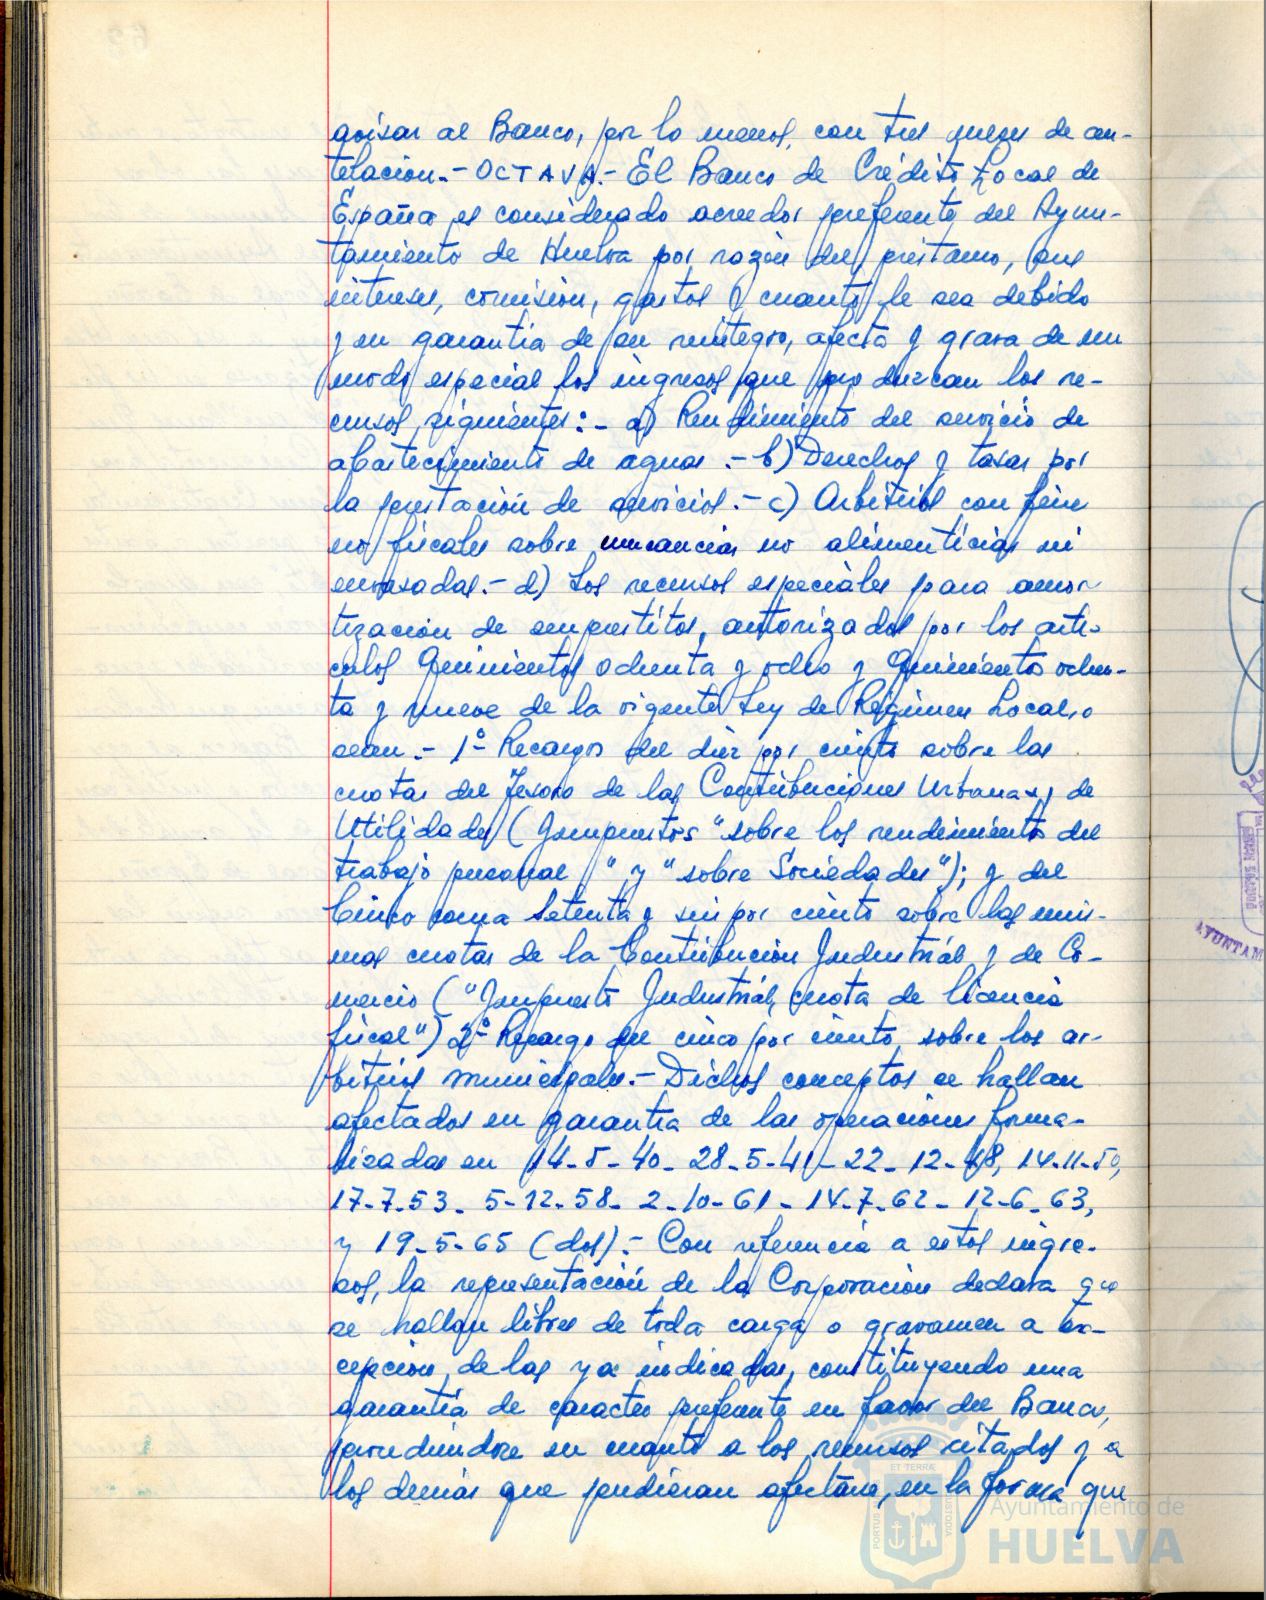 avisar al Banco, por lo menos, con tres meses de an-
telación.- OCTAVA.- El Banco de Crédito Local de
España es considerado acreedor preferente del Ayun-
tamiento de Huelva por razón del préstamo, sus
intereses, comisión, gastos y cuanto le sea debido
y en garantía de su reintegro, afecta y grava de un
modo especial los ingresos que produzcan los re-
cursos siguientes:- a) Rendimiento del servicio de
abastecimiento de aguas.- b) Derechos y tasas por
la prestación de servicios.- c) Arbitrios con fines
no fiscales sobre mercancías no alimenticias ni
envasadas.- d) Los recursos especiales para amor-
tización de empréstitos, autorizados por los artí-
culos quinientos ochenta y ocho y quinientos ochen-
ta y nueve de la vigente Ley de Régimen Local, o
sean.- 1º Recargos del diez por ciento sobre las
cuotas del Tesoro de las Contribuciones Urbanas, de
Utilidades (Impuestos "sobre los rendimientos del
trabajo personal" y "sobre Sociedades"); y del
Cinco coma Setenta y seis por ciento sobre las mis-
mas cuotas de la Contribución Industrial y de Co-
mercio ("Impuesto Industrial, cuota de licencia
fiscal") 2º Recargo del cinco por ciento, sobre los ar-
bitrios municipales.- Dichos conceptos se hallan
afectados en garantía de las operaciones forma-
lizadas en 14-5-40- 28-5-41- 22-12-48, 14-11-50,
17-7-53- 5-12-58- 2-10-61- 14-7-62- 12-6-63,
y 19-5-65 (dos).- Con referencia a estos ingre-
sos, la representación de la Corporación declara que
se hallan libres de toda carga o gravamen a ex-
cepción de las ya indicadas, constituyendo una
garantía de carácter preferente en favor del Banco,
procediéndose en cuanto a los recursos citados y a
los demás que pudieran afectarse, en la forma que
PORTUS MARIS
AYUNTAM
ET TERRAE
CUSTODIA
Ayuntamiento de
HUELVA